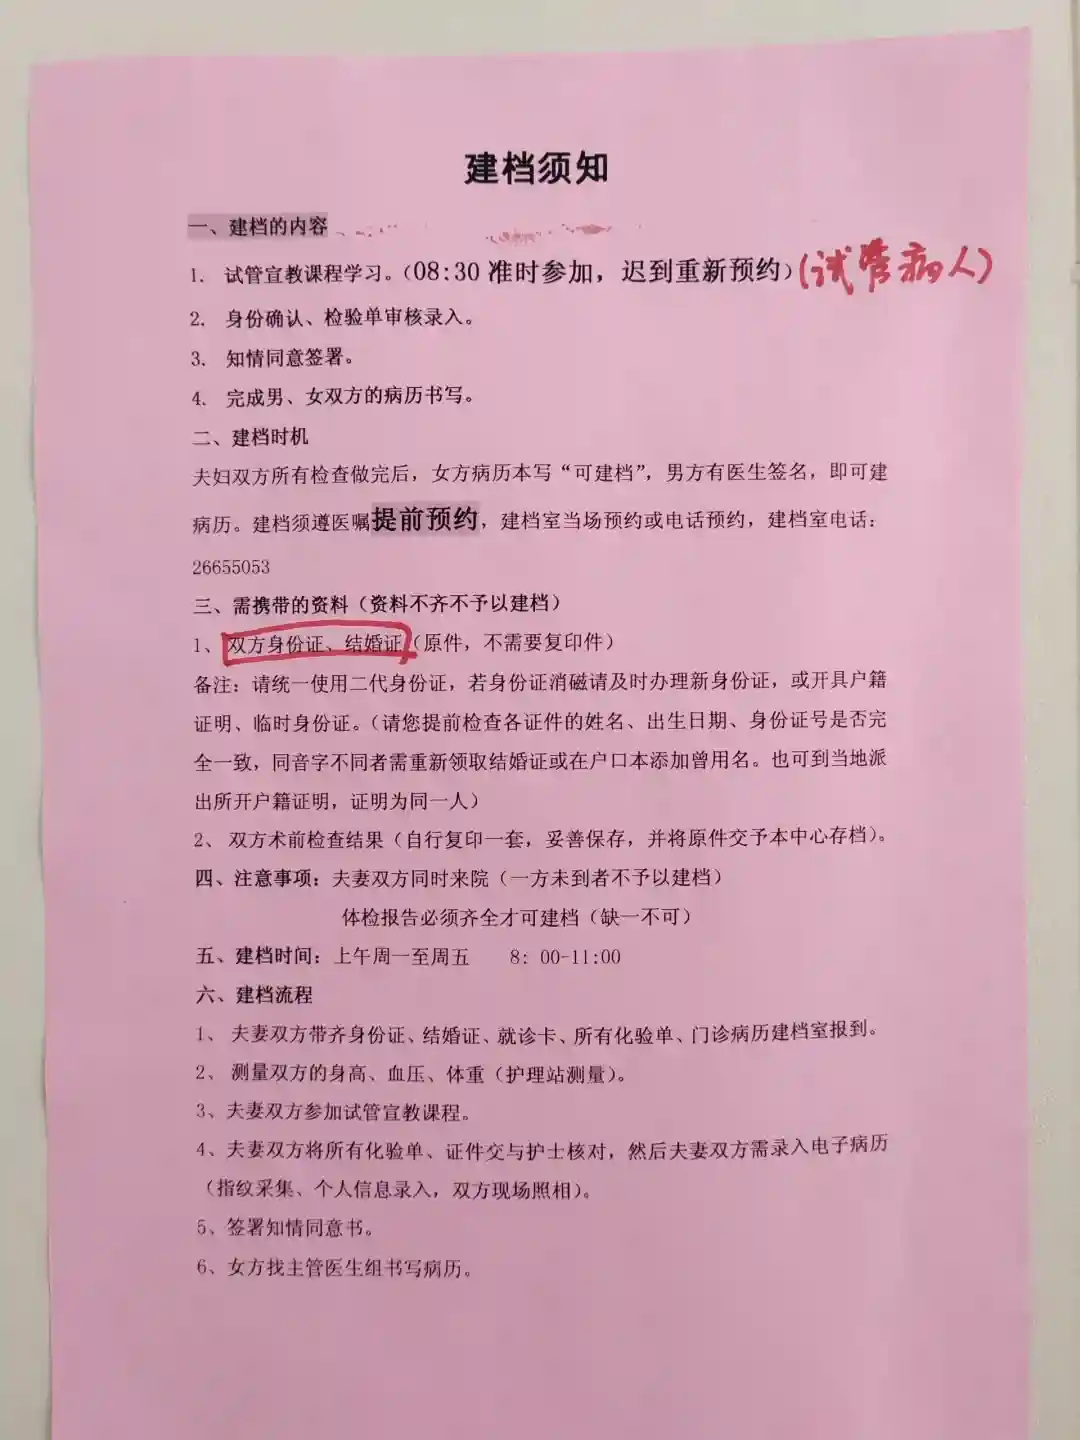 建档须知
一、建档的内容
1. 试管宣教课程学习。（08:30 准时参加，迟到重新预约）(试管病人)
2. 身份确认、检验单审核录入。
3. 知情同意签署。
4. 完成男、女双方的病历书写。
二、建档时机
夫妇双方所有检查做完后，女方病历本写“可建档”，男方有医生签名，即可建
病历。建档须遵医嘱提前预约，建档室当场预约或电话预约，建档室电话：
26655053
三、需携带的资料（资料不齐不予以建档）
1、双方身份证、结婚证（原件，不需要复印件）
备注：请统一使用二代身份证，若身份证消磁请及时办理新身份证，或开具户籍
证明、临时身份证。（请您提前检查各证件的姓名、出生日期、身份证号是否完
全一致，同音字不同者需重新领取结婚证或在户口本添加曾用名。也可到当地派
出所开户籍证明，证明为同一人）
2、双方术前检查结果（自行复印一套，妥善保存，并将原件交予本中心存档）。
四、注意事项：夫妻双方同时来院（一方未到者不予以建档）
体检报告必须齐全才可建档（缺一不可）
五、建档时间：上午周一至周五 8：00-11:00
六、建档流程
1、 夫妻双方带齐身份证、结婚证、就诊卡、所有化验单、门诊病历建档室报到。
2、 测量双方的身高、血压、体重（护理站测量）。
3、夫妻双方参加试管宣教课程。
4、夫妻双方将所有化验单、证件交与护士核对，然后夫妻双方需录入电子病历
（指纹采集、个人信息录入，双方现场照相）。
5、签署知情同意书。
6、女方找主管医生组书写病历。